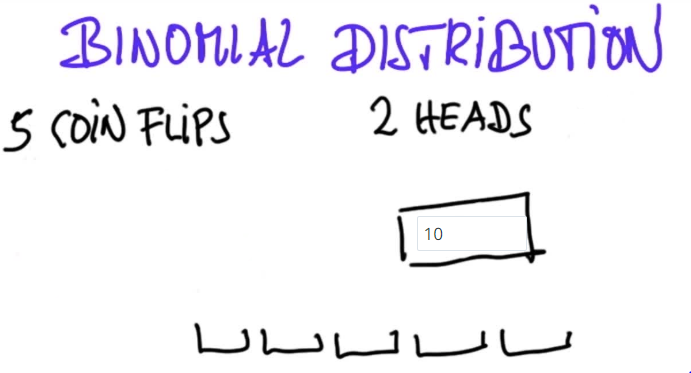 BINOMIAL DISTRIBUTION
5 COIN FLIPS 2 HEADS
10